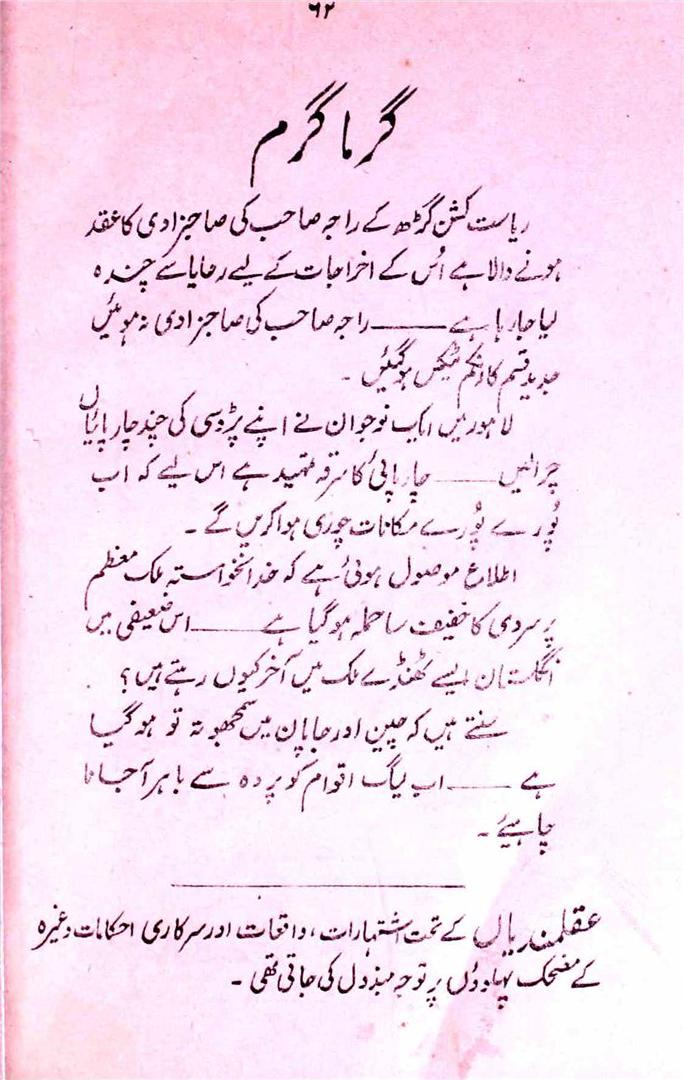 ۶۲
گرما گرم
ریاست کشن گڑھ کے راجہ صاحب کی صاحبزادی کا عقد
ہونے والا ہے اُس کے اخراجات کے لیے رعایا سے چندہ
لیا جا رہا ہے ــــــ راجہ صاحب کی صاحبزادی نہ ہوئیں
جدید قسم کا انکم ٹیکس ہو گئیں ۔
لاہور میں ایک نوجوان نے اپنے پڑوسی کی چند چارپائیاں
چرالیں ــــــ چارپائی کا سرقہ تمہید ہے اس لیے کہ اب
پُورے پُورے مکانات چوری ہوا کریں گے ۔
اطلاع موصول ہوئی ہے کہ خدانخواستہ ملک معظم
پر سردی کا خفیف سا حملہ ہو گیا ہے ــــــ اس ضعیفی میں
انگلستان ایسے ٹھنڈے ملک میں آخر کیوں رہتے ہیں ؟
سنتے ہیں کہ چین اور جاپان میں سمجھوتہ تو ہو گیا
ہے ــــــ اب لیگ اقوام کو پردہ سے باہر آجانا
چاہیئے ۔
عقلمندریاں کے تحت اشتہارات ، واقعات اور سرکاری احکامات وغیرہ
کے مضحک پہلوؤں پر توجہ مبذول کی جاتی تھی ۔